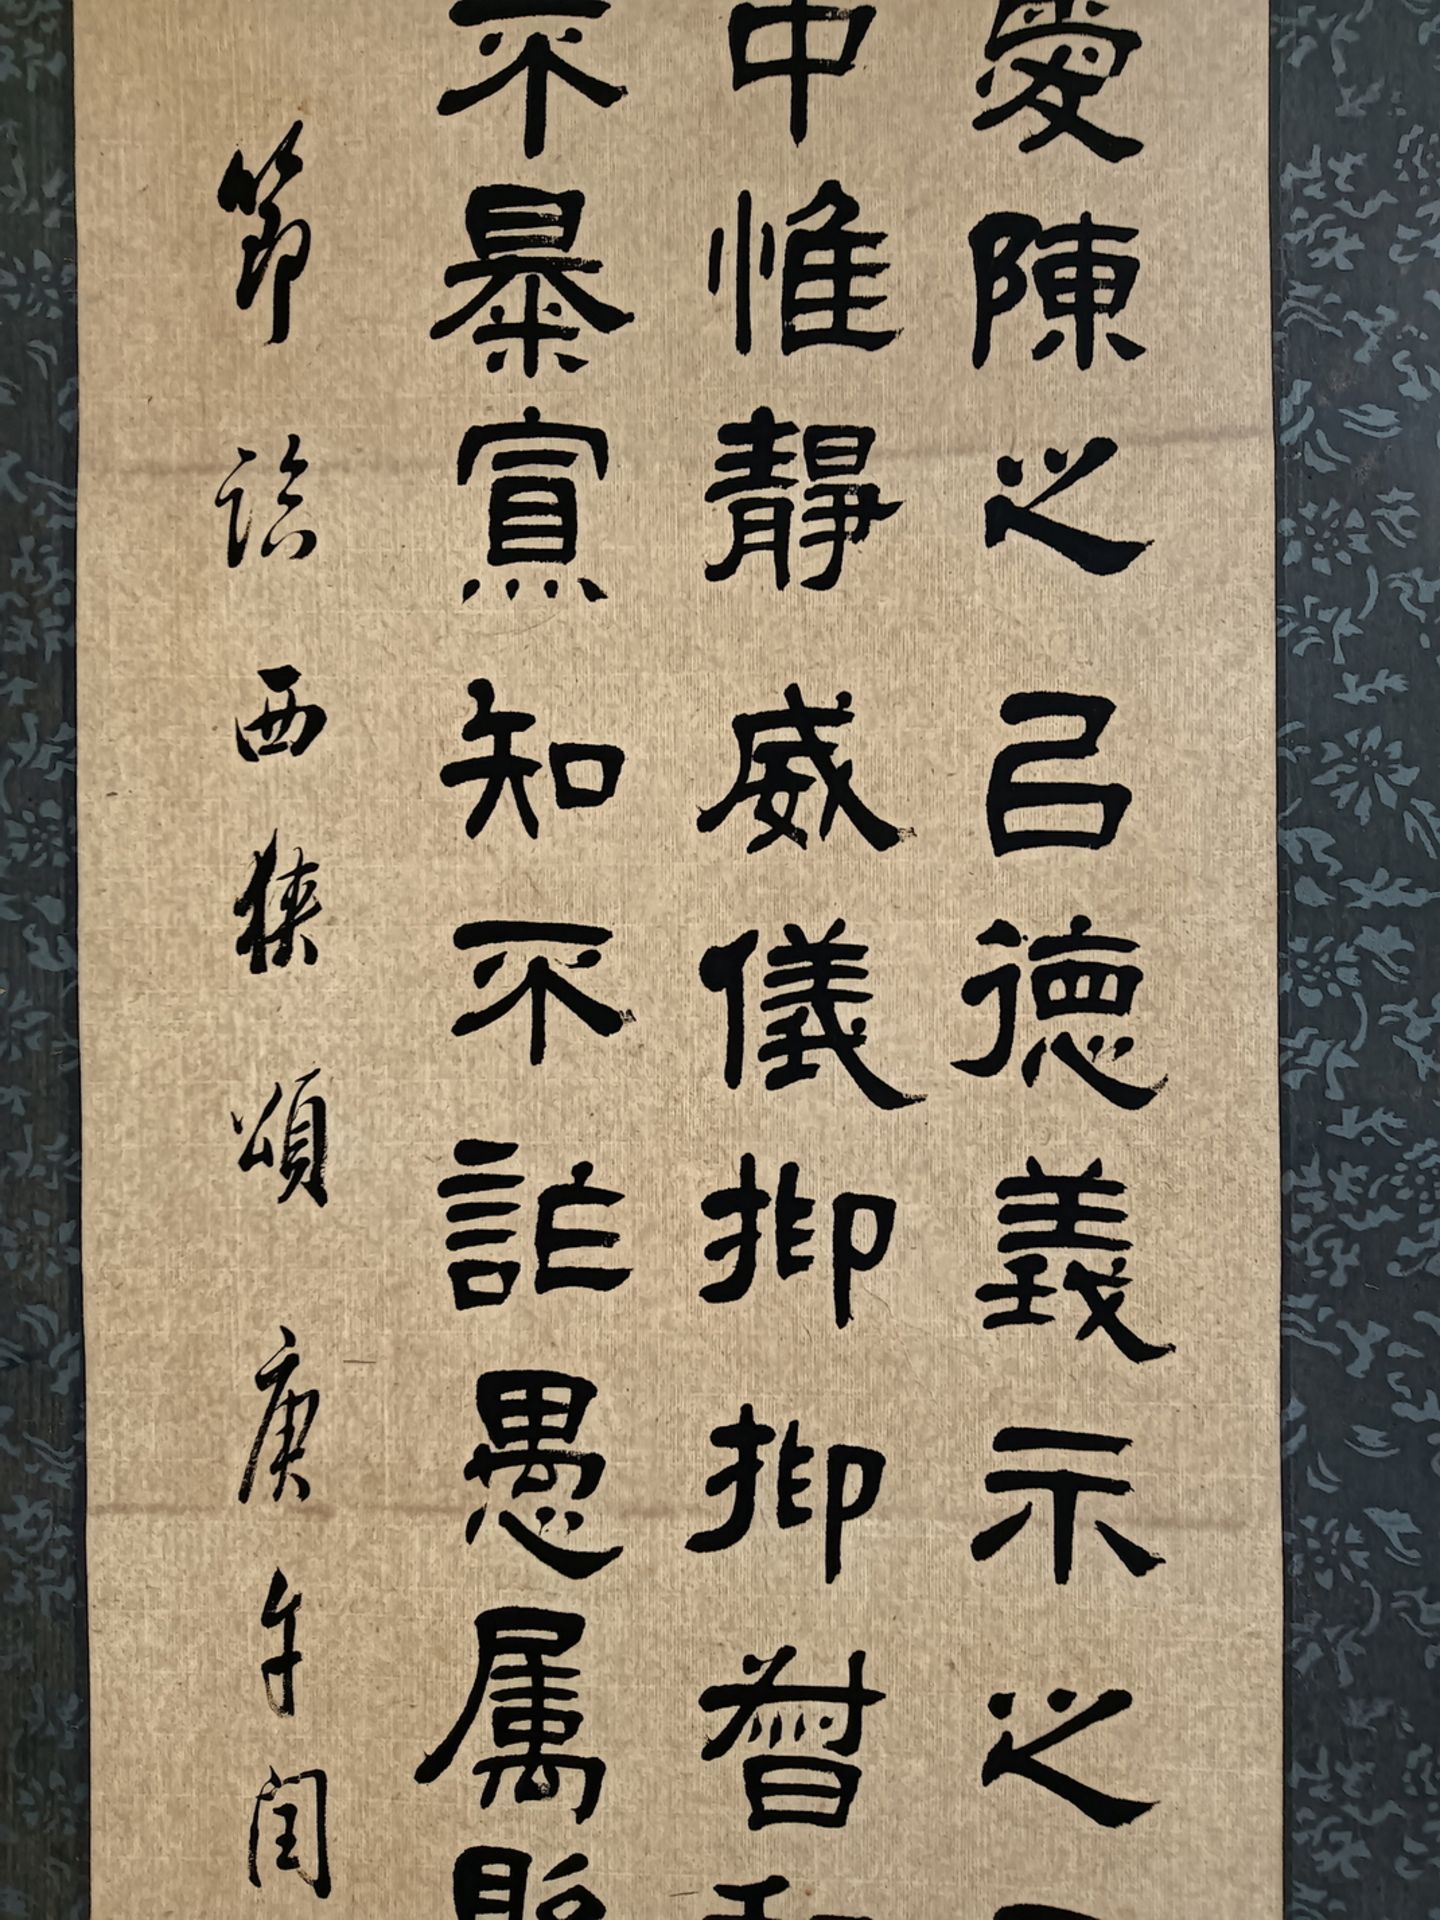 愛陳之㠯德義示之
中惟靜威儀抑抑督
不暴寡知不詐愚属
節臨西狹頌庚午閏